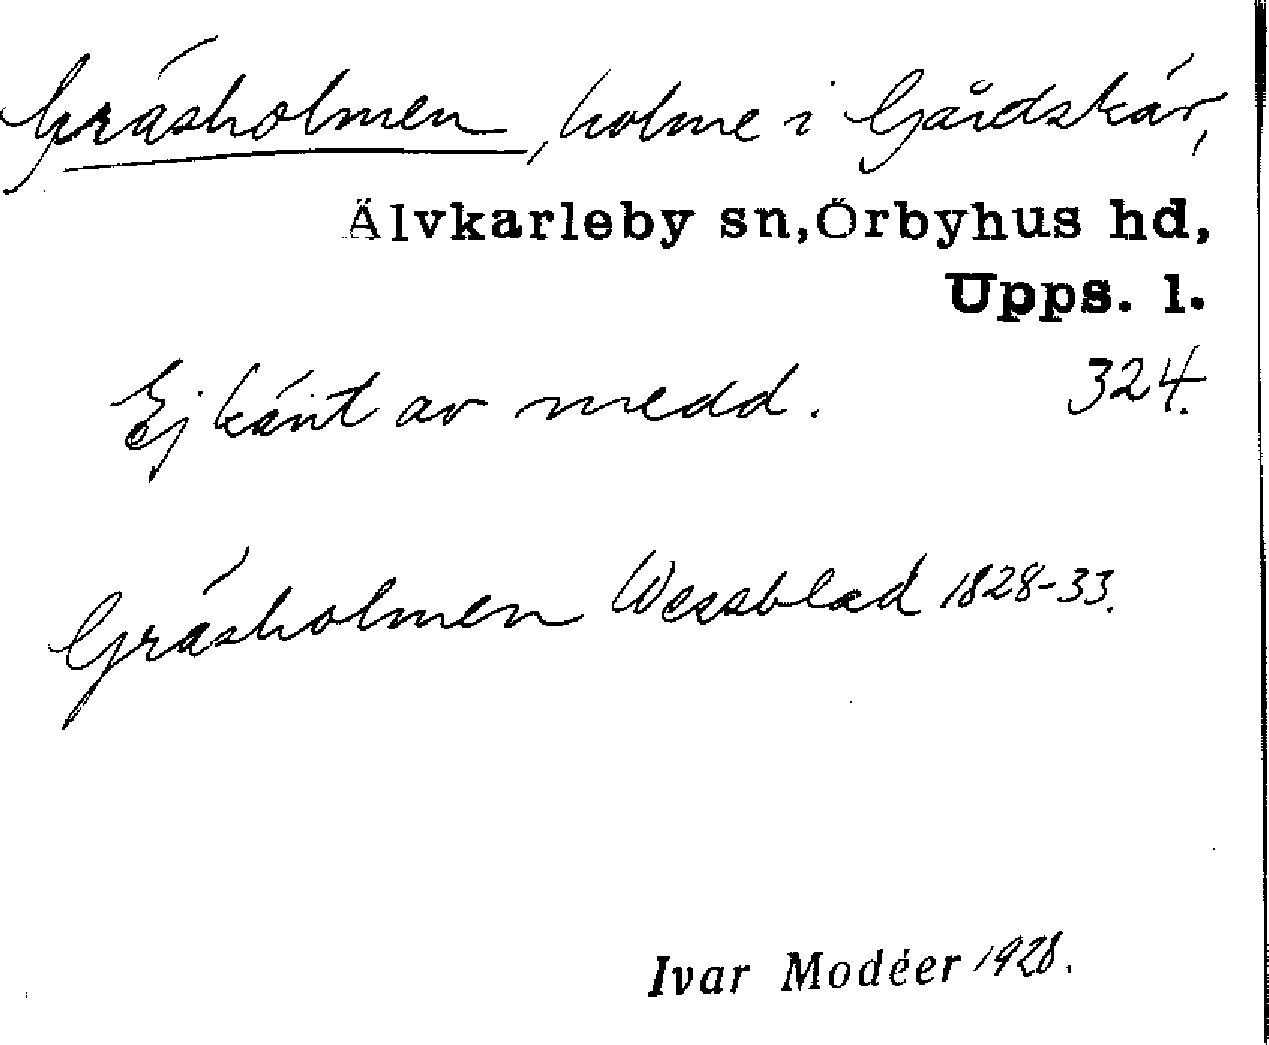 Gräsholmen, holme i Gårdskär,
Älvkarleby sn, Örbyhus hd,
Upps. l.
Ej känt av medd. 324.
Gräsholmen Wessblad 1828-33.
Ivar Modéer 1928.